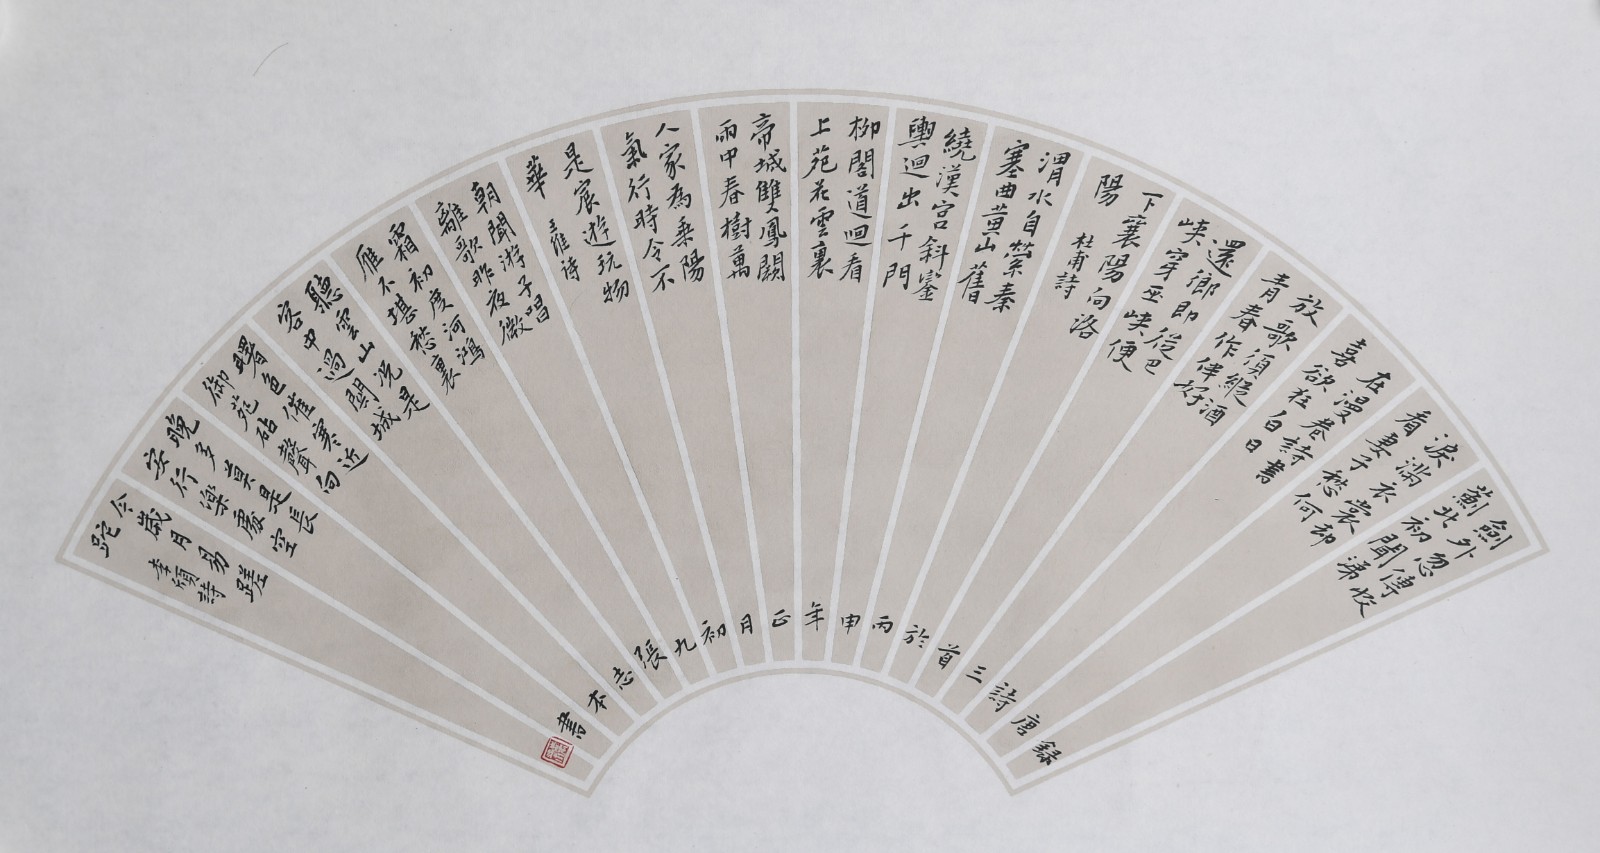 劍外忽傳收
薊北初聞涕
淚滿衣裳却
看妻子愁何
在漫卷詩書
喜欲狂白日
放歌須縱酒
青春作伴好
還鄉即從巴
峽穿巫峽便
下襄陽向洛
陽 杜甫詩
渭水自縈秦
塞曲黄山舊
繞漢宮斜鑾
輿迴出千門
柳閣道迴看
上苑花雲裏
帝城雙鳳闕
雨中春樹萬
人家為乘陽
氣行時令不
是宸遊玩物
華 王維詩
朝聞游子唱
離歌昨夜微
霜初度河鴻
雁不堪愁裏
聽雲山况是
客中過關城
曙色催寒近
御苑砧聲向
晚多莫是長
安行樂處空
令歲月易蹉
跎 李頎詩
錄唐詩三首於丙申年正月初九張志本書